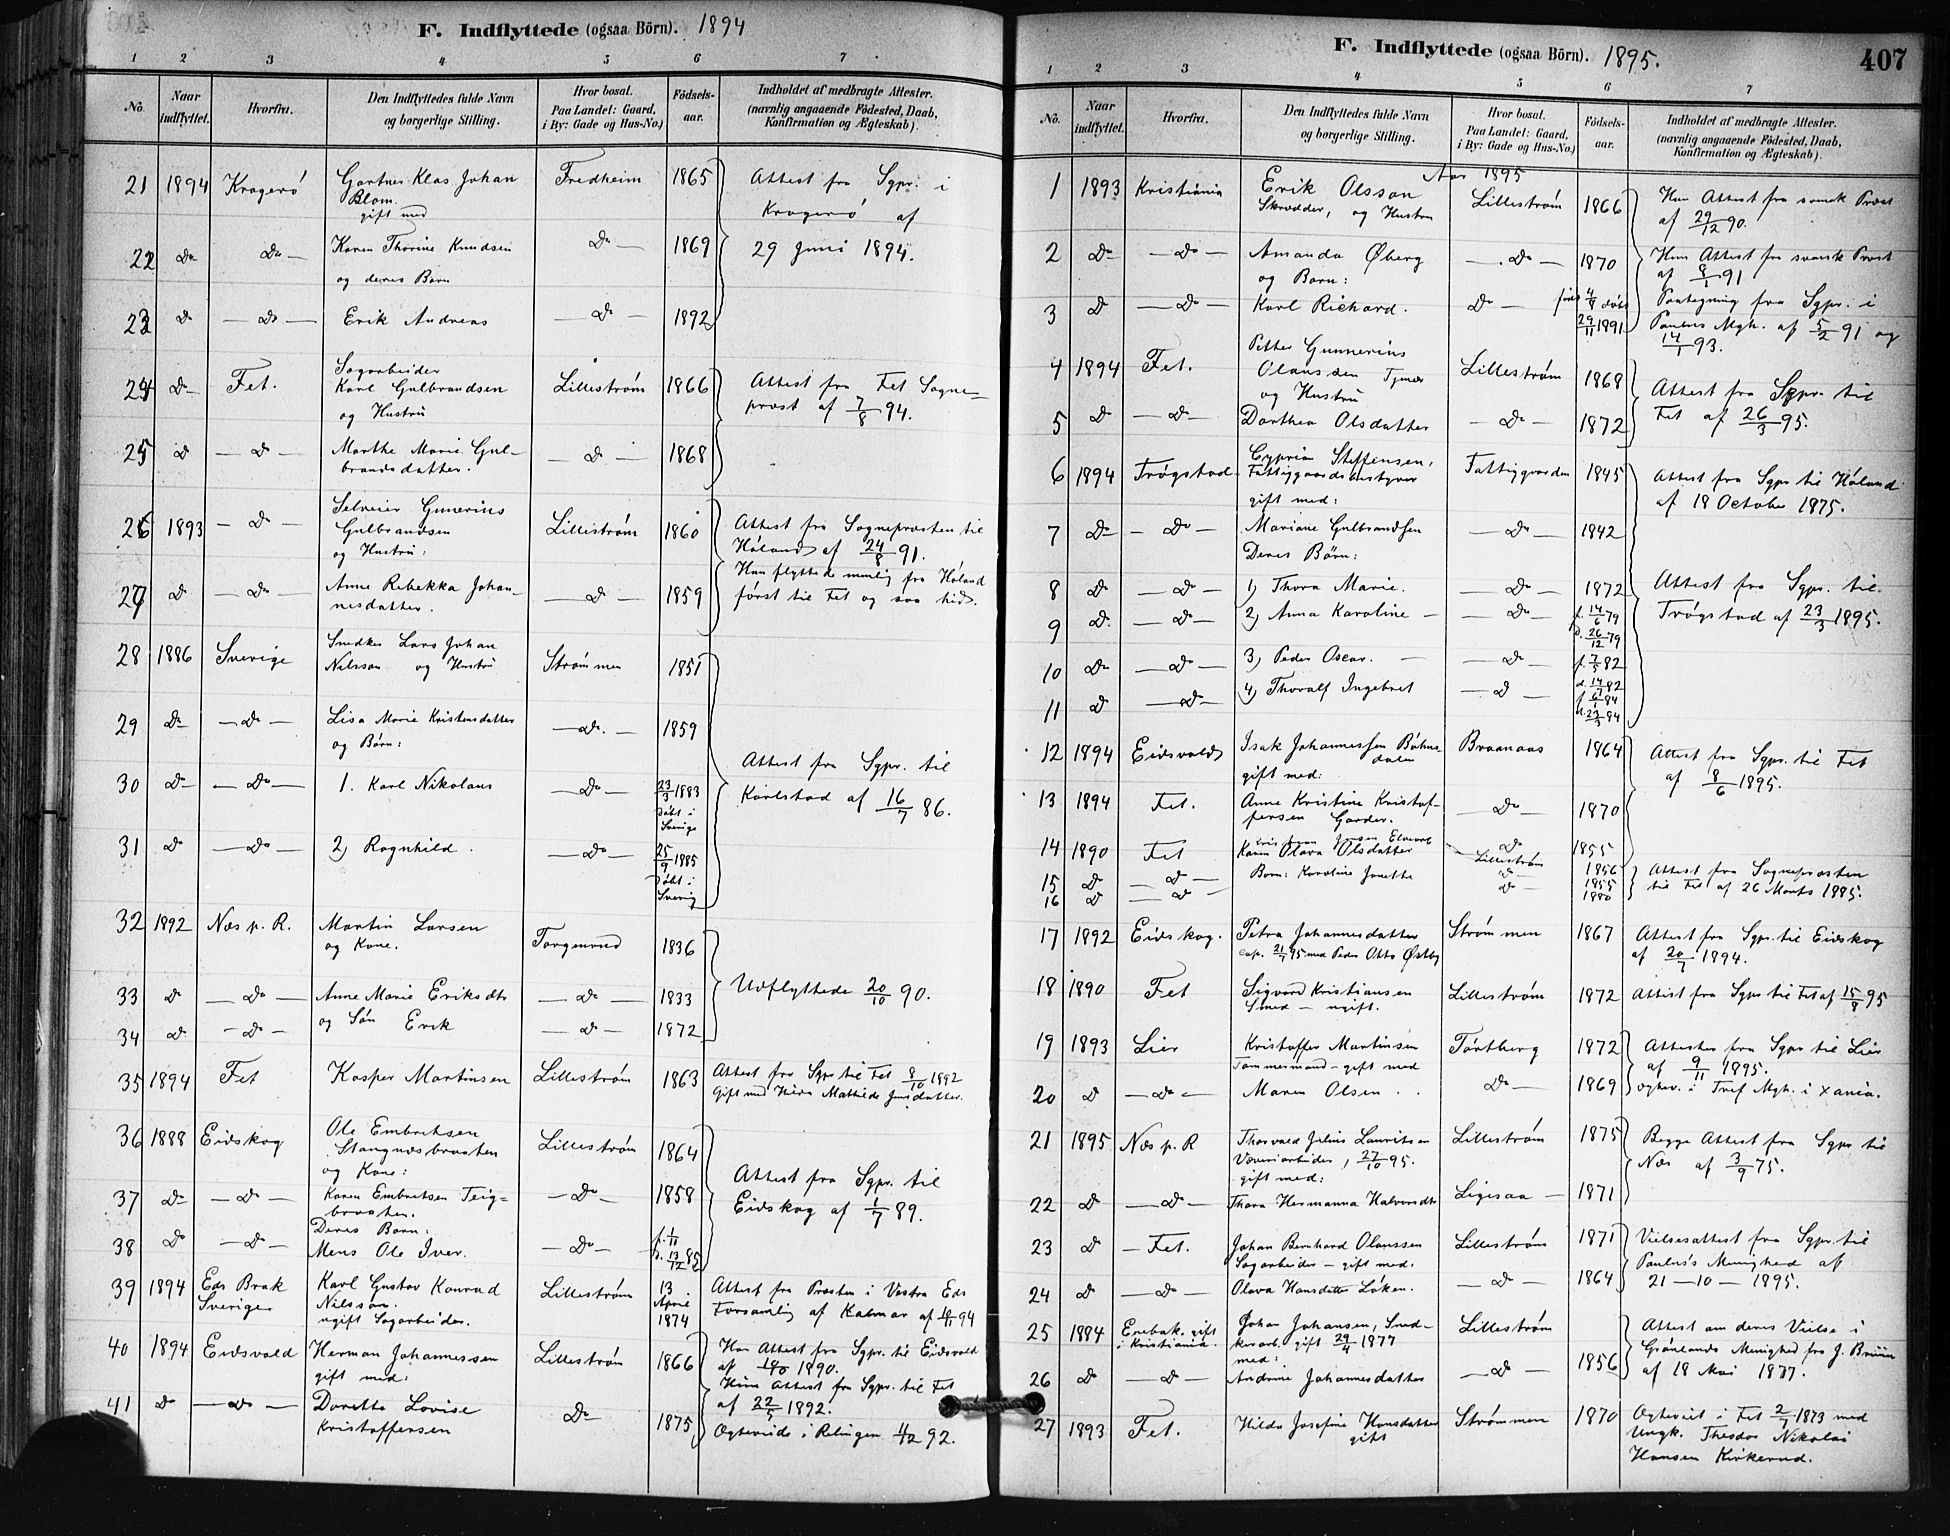 F. Indflyttede (ogsaa Börn). 1894
1 2 3 4 5 6 7
No. Naar indflyttet. Hvorfra. Den Indflyttedes fulde Navn og borgerlige Stilling. Hvor bosat. Paa Landet: Gaard, i By: Gade og Hus-No.) Födsels-aar. Indholdet af medbragte Attester. (navnlig angaaende Födested, Daab, Konfirmation og Ægteskab).
21 1894 Kragerö Gartner Klas Johan Fredheim 1865 Attest fra Sgpr. i
Blom. Kragerö af
gift med
22 Do Do Karen Thorine Knudsen Do 1869 29 Juni 1894.
og deres Barn
23 Do Do Erik Andreas Do 1892
Sagarbeider
24 Do Fet. Karl Gulbrandsen Lillestrøm 1866 Attest fra Fet Sogne-
og Hustru præst af 7/8 94.
25 D D Marthe Marie Gul- D 1868
brandsdatter.
26 1893 D Gunerius
Gulbrandsen Lillestrøm 1860 Attest fra Sognepræsten til
og Hustru: Høland af 24/8 91.
27 D Do Anne Rebekka Johan- D 1859 Han flyttede nemlig fra Høland
nesdatter. først til Fet og saa hid.
28 1886 Sverige Snedker Lars Johan
Nilsson og Hustru Strømmen 1851
29 Do Do Lisa Marie Kristensdatter Do. 1859
og Börn:
30 Do Do 1. Karl Nikolaus Do 23/3 1883 Attest fra Sgpr. til
døbt i Sverige Karlstad af 16/7 86.
31 Do Do 2) Ragnhild. Do 25/9 1885
døbt i Sverig
32 1892 Næs p. R. Martin Larsen Torgerrud 1836
og Kone.
33 D Do Anne Marie Eriksdtr Do 1833 Udflyttede 20/10 90.
34 D Do og Sön Erik D 1872
35 1894 Fet Kasper Martinsen Lillestrøm 1863 Attest fra Sgpr til Fet 8/10 1892
Gift med Hilda Mathilde Jensdatter.
36 1888 Eidskog Ole Embretsen Lillestrøm 1864
Stangnæsbraaten
og Kone: Attest fra Sgpr. til
37 Do Do Karen Embretsen Teig- Do 1858 Eidskog af 1/7 89.
braaten.
Deres Barn:
38 Do Do Mens Ole Iver. Do f. 1/11
D. 13/12 85
39 1894 Eds Bruk Karl Gustav Konrad Lillestrøm 13 Attest fra Præsten i Vestra Eds
Sverige Nilsson. April Forsamling af Kalmar af
ugift Sagarbeider. 1874
40 1894 Eidsvold Herman Johannessen Lillestrøm 1866 Han Attest fra Sgpr. til Eidsvold
gift med: 1890.
41 Do Do Dorette Lovise Do 1875 Hun Attest fra Sgpr. til Fet
Kristoffersen af 22/5 1892.
Ægteviede i Relingen 92.
F. Indflyttede (ogsaa Börn). 1895. 407
1 2 3 4 5 6 7
No. Naar indflyttet. Hvorfra. Den Indflyttedes fulde Navn og borgerlige Stilling. Hvor bosat. Paa Landet: Gaard, i By: Gade og Hus-No.) Födsels-aar. Indholdet af medbragte Attester. (navnlig angaaende Födested, Daab, Konfirmation og Ægteskab).
Aar 1895
1 1893 Kristiania Erik Olsson Lillestrøm 1866 Han Attest fra svensk Præst
Skrædder, og Hustru af 29/12 90.
2 Do Do Amanda Øberg Do 1870 Hun Attest fra svensk Præst
og Barn: af 8/1 91
3 D Do Karl Richard. Do født 4/8 døbt 29/11 1891 Paategning fra Sgpr. i
Paulus Mgh. af 5/2 91 og
14/1 93.
4 1894 Fet. Petter Gunnerius Lillestrøm 1868 Attest fra Sgpr. til
og Hustru
5 D Do Dorthea Olsdatter Do 1872 Fet af 26/3 95.
6 1894 Trøgstad Cyprian Steffensen, Fattiggaarden 1845 Attest fra Sgpr. til Høland
Fattiggaardsbestyrer af 18 October 1875.
gift med:
7 Do Do Mariane Gulbrandsen Do 1842
Deres Børn:
8 D Do 1) Thora Marie. Do 1872 Attest fra Sgpr. til
9 D Do 2) Anna Karoline Do f. 14/6 79 Trøgstad af 23/3 1895.
D. 26/12 79
10 D Do 3) Peder Oscar. Do f. 7/5 82
d. 14/7 82
11 D Do 4) Thoralf Ingebret D f. 6/1 84
d. 23/3 84
12 1894 Eidsvold Isak Johannessen Bøhns- Braanaas 1864 Attest fra Sgpr. til Fet
dalen
gift med: af 8/6 1895.
13 1894 Fet. Anne Kristine Kristof- Do 1870
fersen Garder.
14 1890 Fet Karen Olava Olsdatter Do 1855
Lillestrøm 1856 Attest fra Sognepræsten
15 D D Barn: Karoline Janette D 1855 til Fet af 26 Marts 1885.
16 D D D 1880
17 1892 Eidskog. Petra Johannesdatter Strømmen 1867 Attest fra Sgpr. til Eidskog
Cop. 21/7 95 med Peder Otto Østby af 20/7 1894.
18 1890 Fet Sigvard Kristiansen Lillestrøm 1872 Attest fra Sgpr til Fet af 15/8 95
Smed – ugift.
19 1893 Lier Kristoffer Martinsen Tørtberg 1872 Attester fra Sgpr til Lier
Tømmermand – gift med af 9/11 1895.
20 D Do Maren Olsen Do 1869 ogtev. i Tref Mgh. i Xania.
21 1895 Næs p. R Thorvald Julius Lauritsen Lillestrøm 1875 Begge Attest fra Sgpr til
27/10 95. Næs af 3/9 75.
gift med:
22 D D Thora Hermanna Halvorsdtr 1871
23 D Fet. Johan Bernhard Olaussen Lillestrøm 1871 Vielsesattest fra Sgpr. til
Sagarbeider – gift med. Paulus's Menighed af
24 D D Olava Hansdatter Løken. D 1864 21–10–1895.
25 1884 Enebak. gift i Kristiania. Johan Johansen, Sned- Lillestrøm Attest om deres Vielse i
kerarb. gift 29/4 1877 Grønlands Menighed fra J. Bruun
med:
26 D D Andrine Johannesdatter D 1856 af 18 Mai 1877.
27 1893 Fet. Hilda Josefine Hansdatter Strømmen 1870 Ægteviet i Fet 2/7 1873 med
gift Ungk. Theodor Nikolai
Hansen Kirkerud.